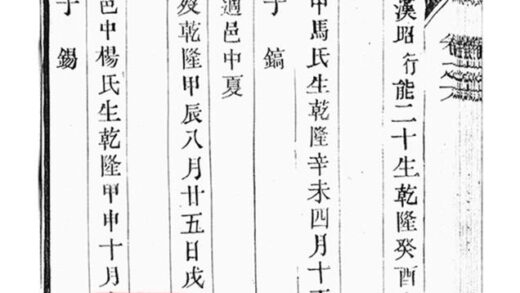 漢昭行能二十生乾隆癸酉
馬氏生乾隆辛未四月十
子 鎬
適邑中夏
歿乾隆甲辰八月廿五日戌
邑中楊氏生乾隆甲申十月
子 錫